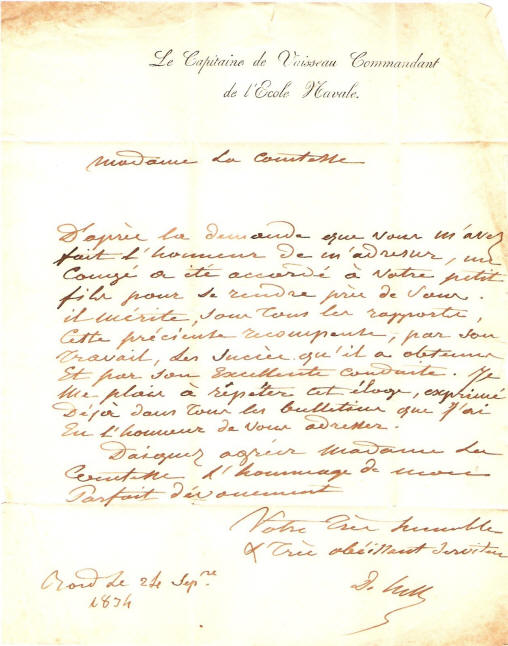 Le Capitaine de Vaisseau Commandant
de l'Ecole Navale.
Madame La Comtesse
D'après la demande que vous m'avez
fait l'honneur de m'adresser, un
Congé a été accordé à votre petit
fils pour se rendre près de vous.
il mérite, sous tous les rapports,
cette précieuse recompense, par son
travail, des succès qu'il a obtenus
Et par son excellente conduite. Je
me plais à répéter cet éloge, exprimé
Déjà dans tous les bulletins que j'ai
Eu l'honneur de vous adresser.
Daignez agréer Madame La
Comtesse l'hommage de mon
Parfait dévouement
Votre Très humble
& Très obéissant serviteur
Bord Le 24 Sep.re
1834